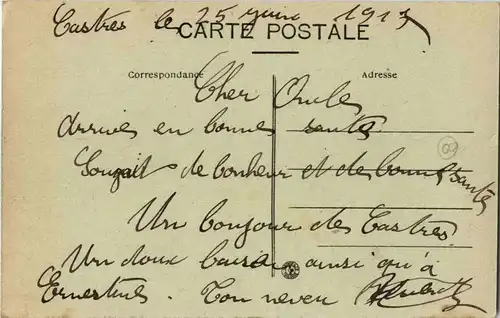 Castres le 25 Juin 1913
CARTE POSTALE
Correspondance
Adresse
Cher Oncle
Arrivés en bonne santé
Souhait de bonheur et de bonne santé
Un bonjour de Castres
Un doux baiser ainsi qu'à
Ernestine. Ton neveu
09